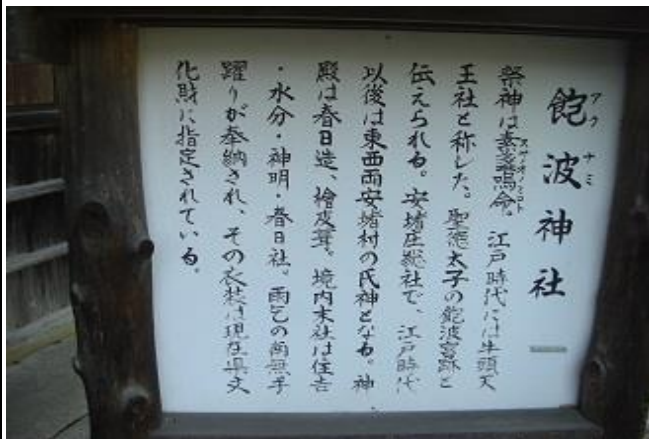 飽波神社
アクナミ
祭神は素盞嗚命。江戸時代には牛頭天
スサノオノミコト
王社と称した。聖徳太子の飽波宮跡と
伝えられる。安堵庄総社で、江戸時代
以後は東西両安堵村の氏神となる。神
殿は春日造、檜皮葺。境内末社は住吉
・水分・神明・春日社。雨乞の南無手
踊りが奉納され、その衣装は現在県文
化財に指定されている。